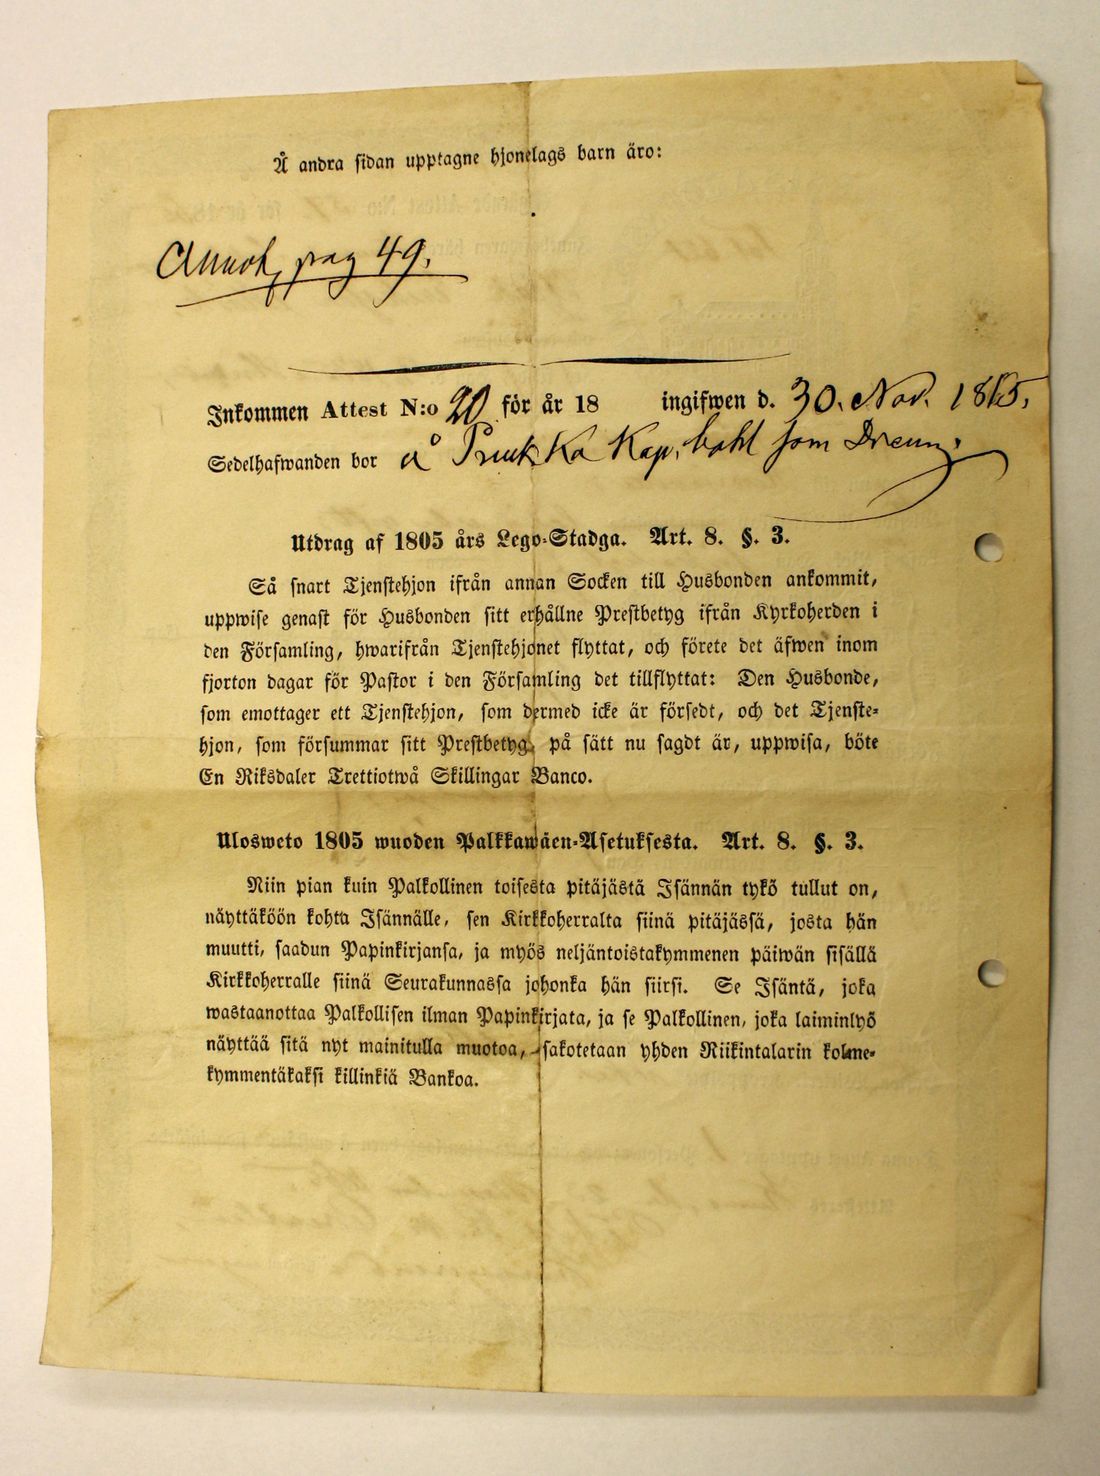 Å andra sidan upptagne hjonelags barn äro:
Annot, pag 49.
Inkommen Attest N:o 20 för år 18 ingifwen d. 30. Nov. 1885.
Sedelhafwanden bor å Kap. bohl som Dreng.
Utdrag af 1805 års Lego-Stadga. Art. 8. §. 3.
Så snart Tjenstehjon ifrån annan Socken till Husbonden ankommit,
uppwise genast för Husbonden sitt erhållne Prestbetyg ifrån Kyrkoherden i
den Församling, hwarifrån Tjenstehjonet flyttat, och förete det äfwen inom
fjorton dagar för Pastor i den Församling det tillflyttat: Den Husbonde,
som emottager ett Tjenstehjon, som dermed icke är försedt, och det Tjenste-
hjon, som försummar sitt Prestbetyg, på sätt nu sagdt är, uppwisa, böte
En Riksdaler Trettiotwå Skillingar Banco.
Ulosweto 1805 wuoden Palkkawäen-Asetuksesta. Art. 8. §. 3.
Niin pian kuin Palkollinen toisesta pitäjästä Isännän tykö tullut on,
näyttäköön kohta Isännälle, sen Kirkkoherralta siinä pitäjässä, josta hän
muutti, saadun Papinkirjansa, ja myös neljäntoistakymmenen päiwän sisällä
Kirkkoherralle siinä Seurakunnassa johonka hän siirsi. Se Isäntä, joka
wastaanottaa Palkollisen ilman Papinkirjata, ja se Palkollinen, joka laiminlyö
näyttää sitä nyt mainitulla muotoa, sakotetaan yhden Riikintalarin kolme-
kymmentäkaksi killinkiä Bankoa.